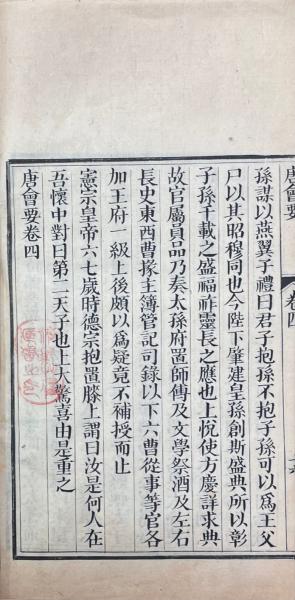 唐會要
卷四
孫謀以燕翼子禮曰君子抱孫不抱子孫可以爲王父
尸以其昭穆同也今陛下肇建皇孫創斯盛典所以彰
子孫千載之盛福祚靈長之應也上悅使方慶詳求典
故官屬員品乃奏太孫府置師傅及文學祭酒及左右
長史東西曹掾主簿管記司錄以下六曹從事等官各
加王府一級上後頗以爲疑竟不補授而止
憲宗皇帝六七歲時德宗抱置膝上謂曰汝是何人在
吾懷中對曰第三天子也上大驚喜由是重之
唐會要卷四